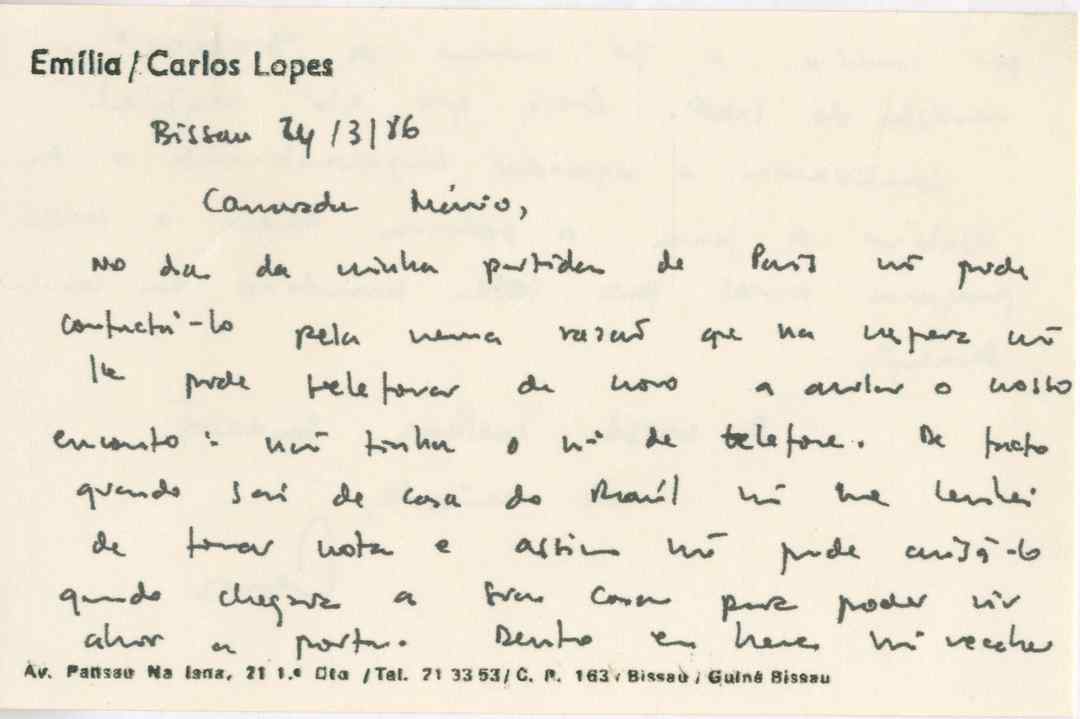 Emília / Carlos Lopes
Bissau 24/3/86
Camarada Mário,
No dia da minha partida de Paris não pude
contactá-lo pela mesma razão que na vespera não
lhe pude telefonar de novo a anular o nosso
encontro: não tinha o nº de telefone. De facto
quando saí de casa do Raúl não me lembrei
de tomar nota e assim não pude avisá-lo
quando chegava a sua casa para poder vir
abrir a porta. Dentro em breve irá receber
Av. Pansau Na Isna, 21 1.º Dto / Tel. 21 33 53 / C. P. 163 / Bissau / Guiné Bissau